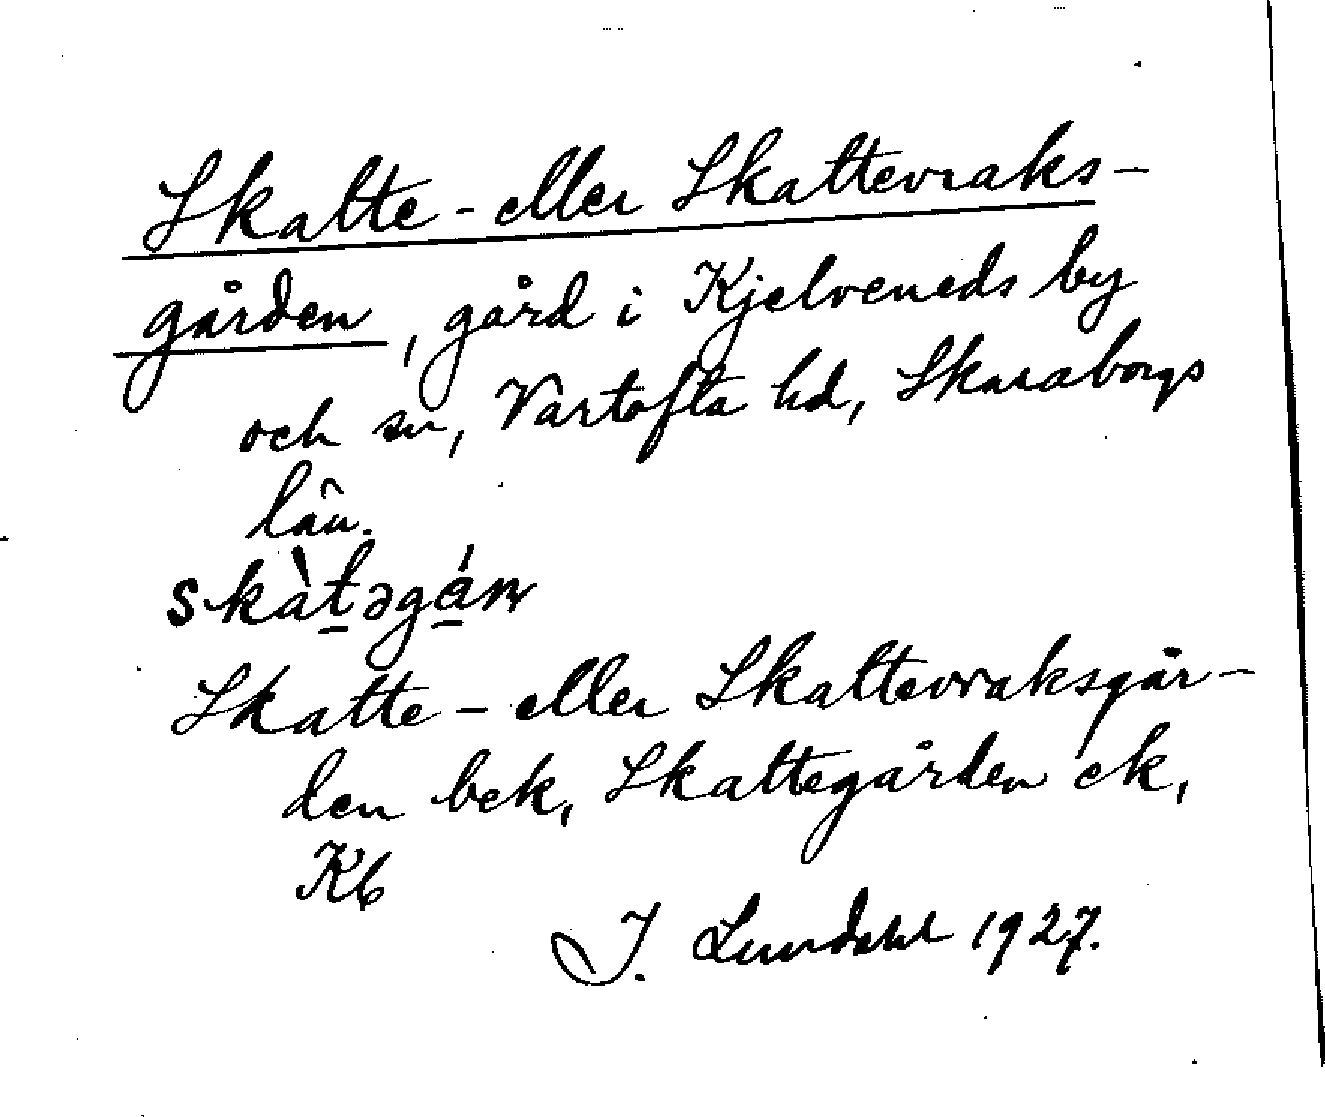 Skatte- eller Skattevraks-
gården, gård i Kjelveneds by
och sn, Vartofta hd, Skaraborgs
län.
skàt̠əgá̠ɳ
Skatte- eller Skattevraksgår-
den bek, Skattegården ek,
Kb
I. Lundahl 1927.